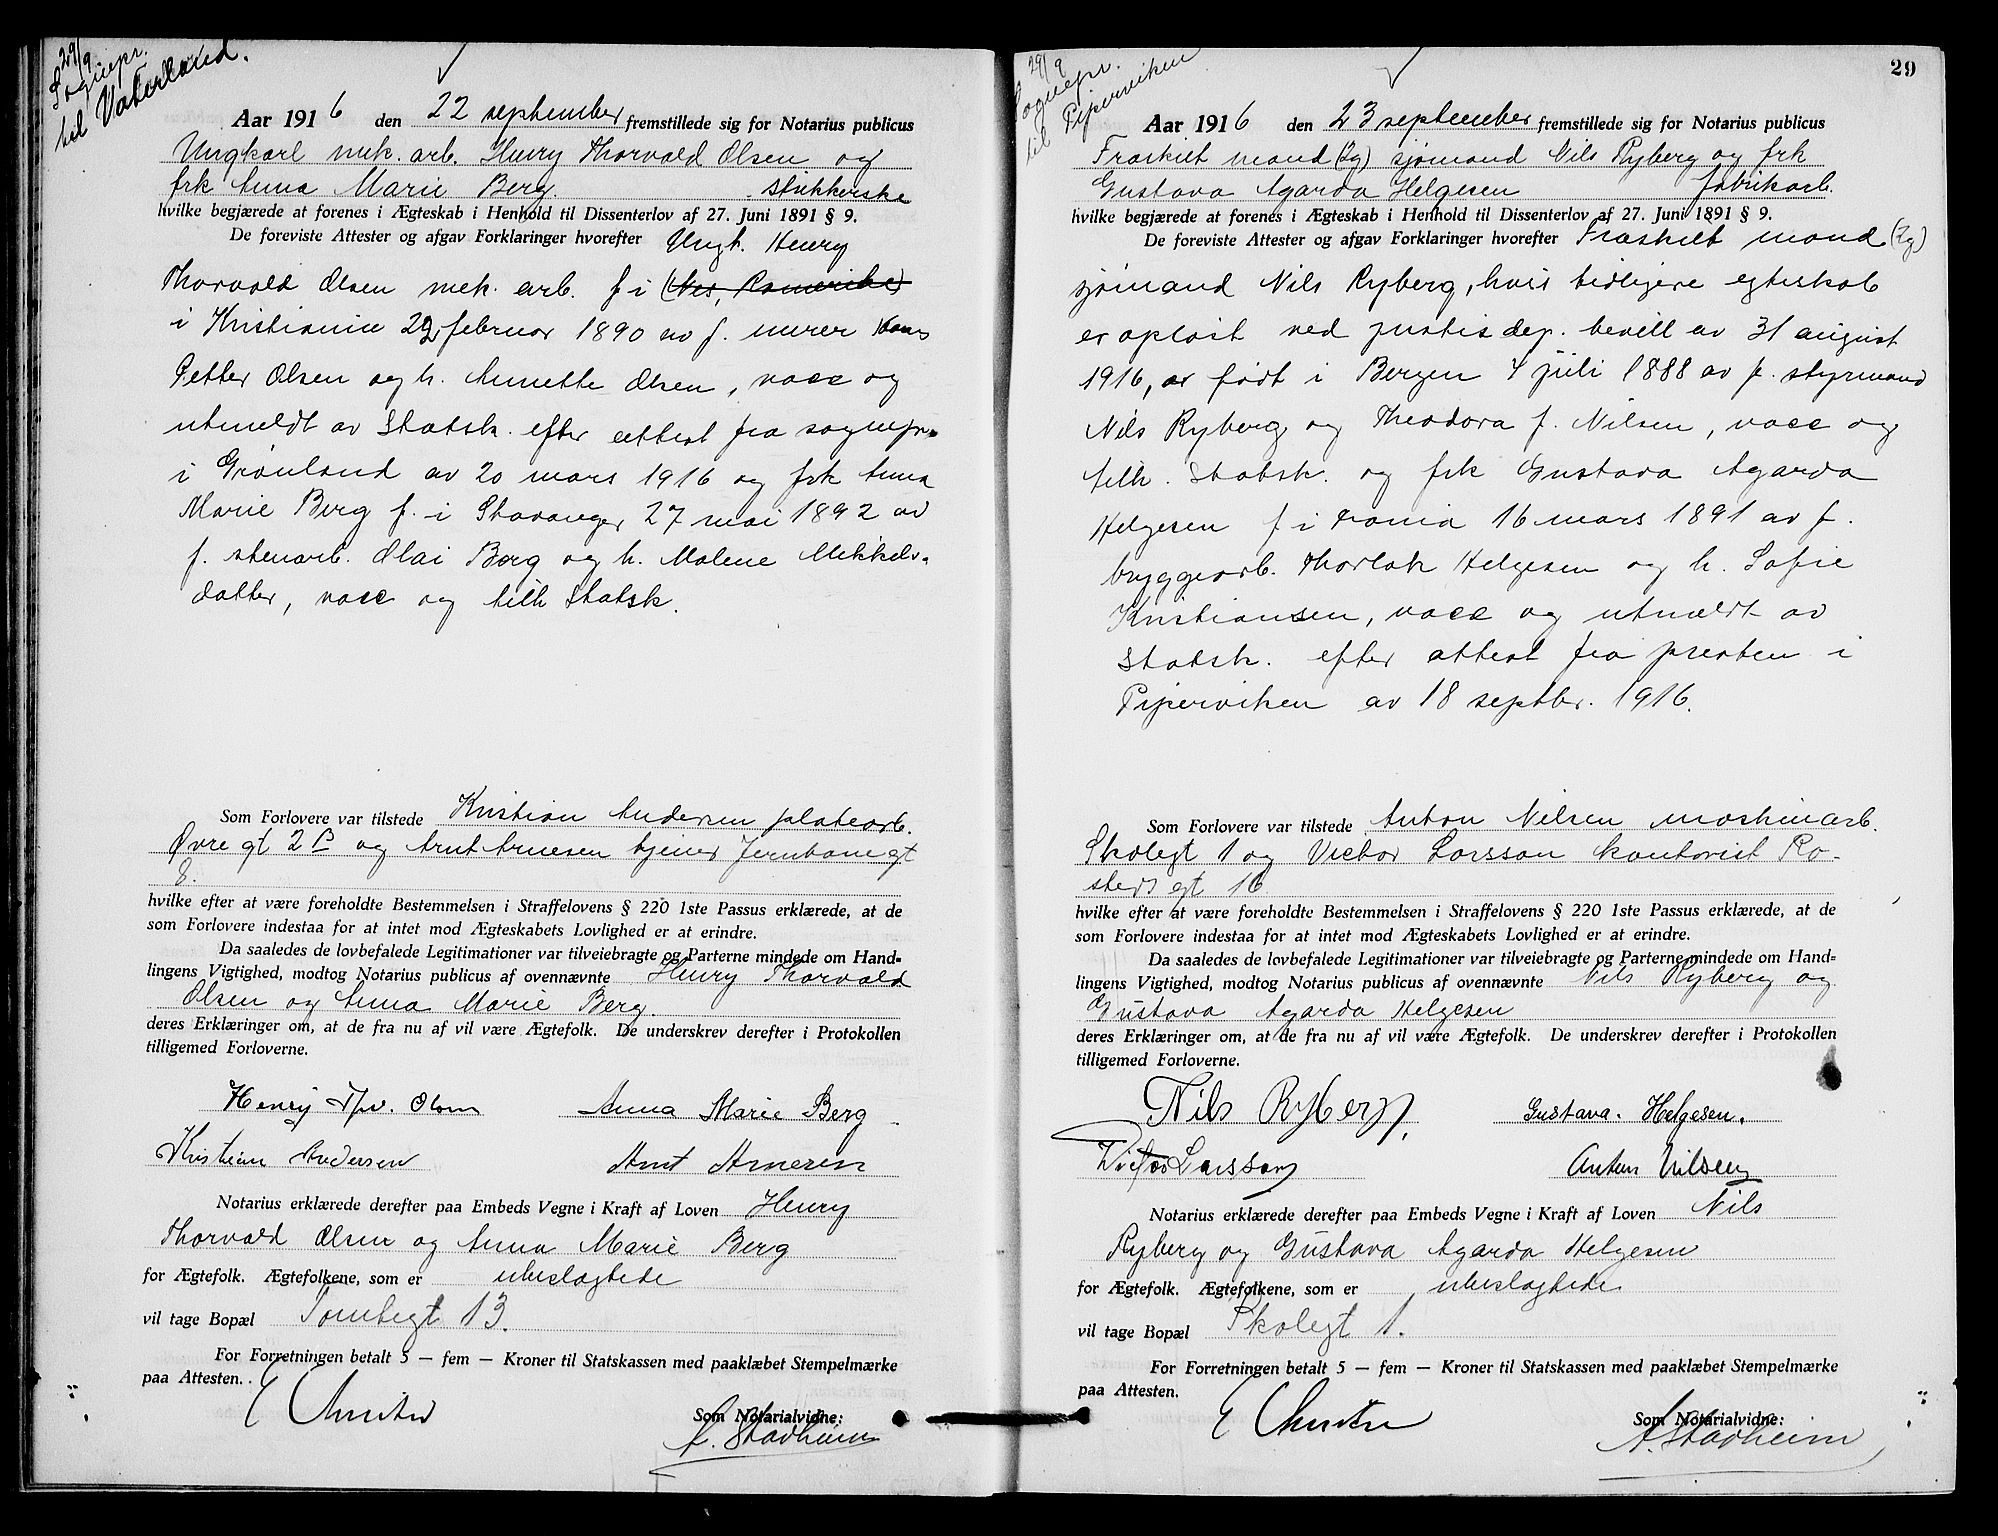 29/9
Sognepr.
til Vaterland.
Aar 1916 den 22 september fremstillede sig for Notarius publicus
Ungkarl mek. arb. Henry Thorvald Olsen og
frk Anna Marie Berg. strikkerske
hvilke begjærede at forenes i Ægteskab i Henhold til Dissenterlov af 27. Juni 1891 § 9.
De foreviste Attester og afgav Forklaringer hvorefter Ungk. Henry
Thorvald Olsen mek. arb. f i (Nes, Romerike)
i Kristiania 22 februar 1890 av f. murer Hans
Petter Olsen og h. Annette Olsen, vacc og
utmeldt av Statsk. efter attest fra sognepr.
i Grønland av 20 mars 1916 og frk Anna
Marie Berg f. i Stavanger 27 mai 1892 av
f. stenarb. Olai Berg og h. Malene Mikkels-
datter, vacc og tilh Statsk.
Som Forlovere var tilstede Kristian Andersen platearb.
Øvre gt 2 B og Arnt Arnesen tjener Jernbanegt
8.
hvilke efter at være foreholdte Bestemmelsen i Straffelovens § 220 1ste Passus erklærede, at de
som Forlovere indestaa for at intet mod Ægteskabets Lovlighed er at erindre.
Da saaledes de lovbefalede Legitimationer var tilveiebragte og Parterne mindede om Hand-
lingens Vigtighed, modtog Notarius publicus af ovennævnte Henry Thorvald
Olsen og Anna Marie Berg.
deres Erklæringer om, at de fra nu af vil være Ægtefolk. De underskrev derefter i Protokollen
tilligemed Forloverne.
Henry Thv. Olsen Anna Marie Berg
Kristian Andersen Arnt Arnesen
Notarius erklærede derefter paa Embeds Vegne i Kraft af Loven Henry
Thorvald Olsen og Anna Marie Berg
for Ægtefolk. Ægtefolkene, som er ubeslægtede
vil tage Bopæl Tomtegt 13.
For Forretningen betalt 5 — fem — Kroner til Statskassen med paaklæbet Stempelmærke
paa Attesten.
E
Som Notarialvidne:
A. Stadheim
29
29/9
Sognepr.
til Piperviken
Aar 1916 den 23 september fremstillede sig for Notarius publicus
Fraskilt mand (2g) sjømand Nils Ryberg og frk
Gustava Agarda Helgesen fabrikarb.
hvilke begjærede at forenes i Ægteskab i Henhold til Dissenterlov af 27. Juni 1891 § 9.
De foreviste Attester og afgav Forklaringer hvorefter Fraskilt mand (2g)
sjømand Nils Ryberg, hvis tidligere egteskab
er opløst ved justisdep. bevill av 31 august
1916, er født i Bergen 4 juli 1888 av f. styrmand
Nils Ryberg og Theodora f. Nilsen, vacc og
tilh. Statsk. og frk Gustava Agarda
Helgesen f i Krania 16 mars 1891 av f.
bryggearb. Thorlak Helgesen og h. Sofie
Kristiansen, vacc og utmeldt av
Statsk. efter attest fra presten i
Piperviken av 18 septbr. 1916.
Som Forlovere var tilstede Anton Nilsen maskinarb.
Skolegt 1 og Victor Larsson kontorist Ro-
steds gt 16
hvilke efter at være foreholdte Bestemmelsen i Straffelovens § 220 1ste Passus erklærede, at de
som Forlovere indestaa for at intet mod Ægteskabets Lovlighed er at erindre.
Da saaledes de lovbefalede Legitimationer var tilveiebragte og Parterne mindede om Hand-
lingens Vigtighed, modtog Notarius publicus af ovennævnte Nils Ryberg og
Gustava Agarda Helgesen
deres Erklæringer om, at de fra nu af vil være Ægtefolk. De underskrev derefter i Protokollen
tilligemed Forloverne.
Nils Ryberg. Gustava. Helgesen.
Victor Larsson Anton Nilsen
Notarius erklærede derefter paa Embeds Vegne i Kraft af Loven Nils
Ryberg og Gustava Agarda Helgesen
for Ægtefolk. Ægtefolkene, som er ubeslægtede
vil tage Bopæl Skolegt 1.
For Forretningen betalt 5 — fem — Kroner til Statskassen med paaklæbet Stempelmærke
paa Attesten.
E
Som Notarialvidne:
A. Stadheim